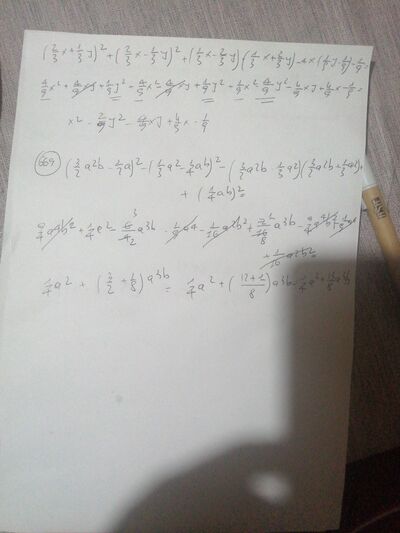 (2/3 x + 1/3 y)² + (2/3 x - 1/3 y)² + (1/3 x - 2/3 y)(1/3 x + 2/3 y) - 4x(1/9 y - 1/9) - 1/9 =
4/9 x² + 4/9 xy + 1/9 y² + 4/9 x² - 4/9 xy + 1/9 y² + 1/9 x² - 4/9 y² - 4/9 xy + 4/9 x - 1/9 =
x² - 2/9 y² - 4/9 xy + 4/9 x - 1/9
669 (3/2 a²b - 1/2 a)² - (1/3 a² - 3/4 ab)² - (3/2 a²b - 1/3 a²)(3/2 a²b + 1/3 a²) +
+ (1/4 ab)² =
1/4 a² + (3/2 + 1/8) a³b = 1/4 a² + (12+1/8) a³b = 1/4 a² + 13/8 a³b